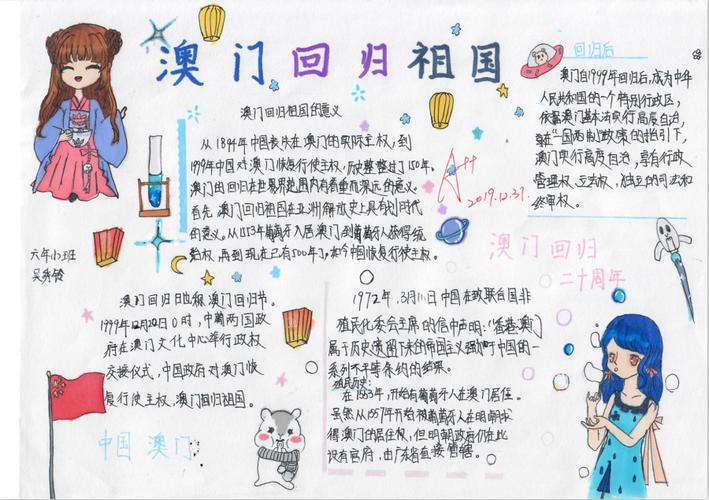 澳门回归祖国
澳门回归祖国的意义
从1844年中国丧失在澳门的实际主权,到
1999年中国对澳门恢复行使主权,历史整整过了150年。
澳门的回归在世界范围内有着重而深远的意义。
首先,澳门回归祖国在亚洲解放史上具有划时代
的意义。从1553年葡萄牙人入居澳门,到葡萄牙人获得统
治权,再到现在已有500年了,如今中国恢复行使主权。
A++
2019.12.31.
回归后
澳门自1999年回归后,成为中华
人民共和国的一个特别行政区,
依据澳门基本法实行高度自治,
在"一国两制"政策的指引下,
澳门实行高度自治,享有行政
管理权、立法权、独立的司法和
终审权。
六年(1)班
澳门回归
二十周年
澳门回归日也称澳门回归节。
1999年12月20日0时,中葡两国政
府在澳门文化中心举行政权
交接仪式,中国政府对澳门恢
复行使主权,澳门回归祖国。
中国 澳门
1972年,3月8日中国在致联合国非
殖民化委会主席的信中声明:"香港、澳门
属于历史遗留下来的帝国主义强加于中国的一
系列不平等条约的结果。
殖民历史:
在1553年,开始有葡萄牙人在澳门居住。
虽然从1557年开始被葡萄牙人在明朝求
得澳门的居住权,但明朝政府仍在此
设有官府,由广东省直接管辖。